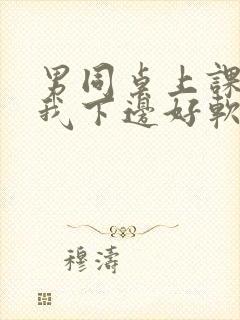 男同桌上課
我下邊好軟
穆濤